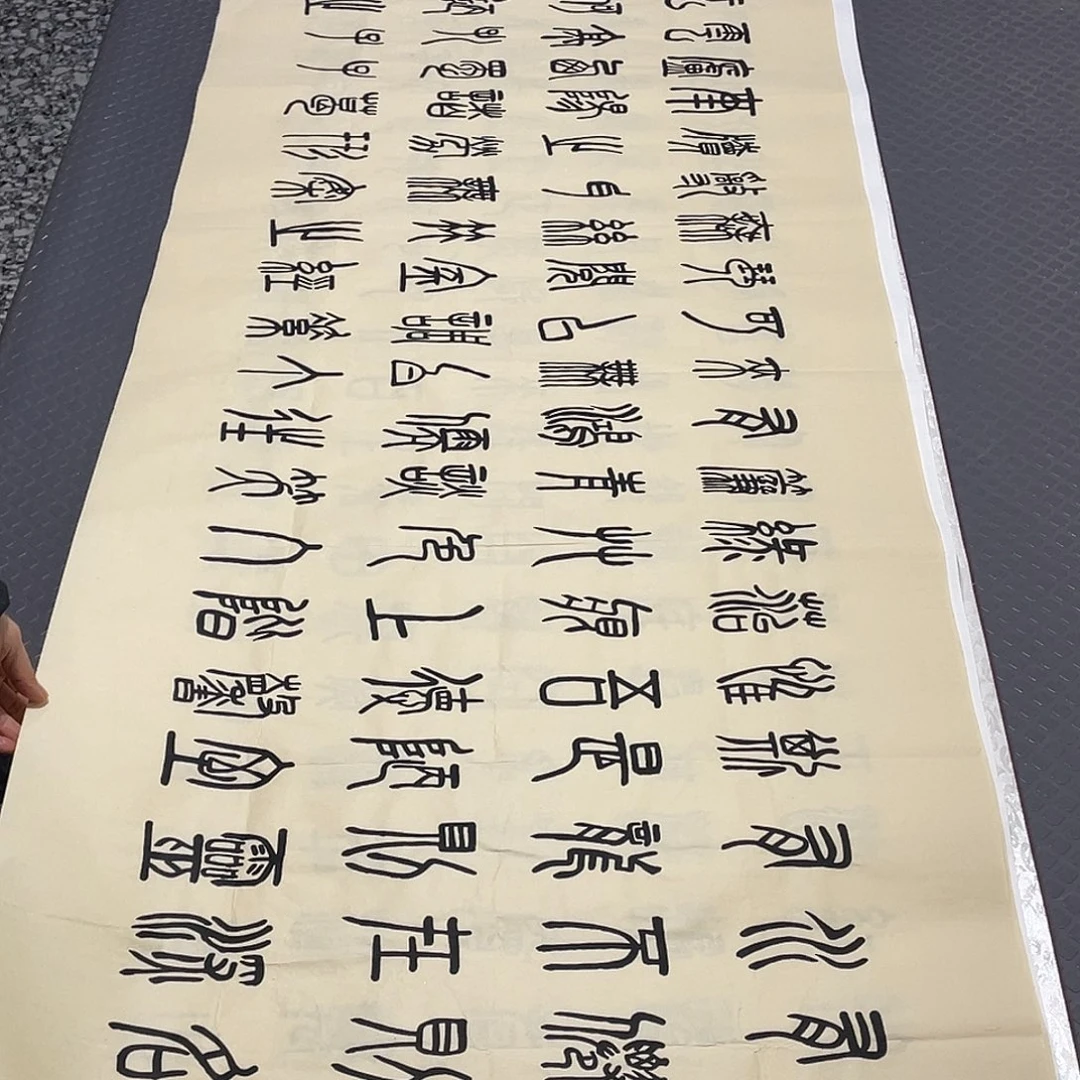 有仙則名
水不在深
有龍則靈
斯是陋室
惟吾德馨
苔痕上階
綠草色入
簾青談笑
有鴻儒往
來無白丁
可以調素
琴閱金經
無絲竹之
亂耳無案
牘之勞形
南陽諸葛
廬西蜀子
雲亭孔子
云何陋之